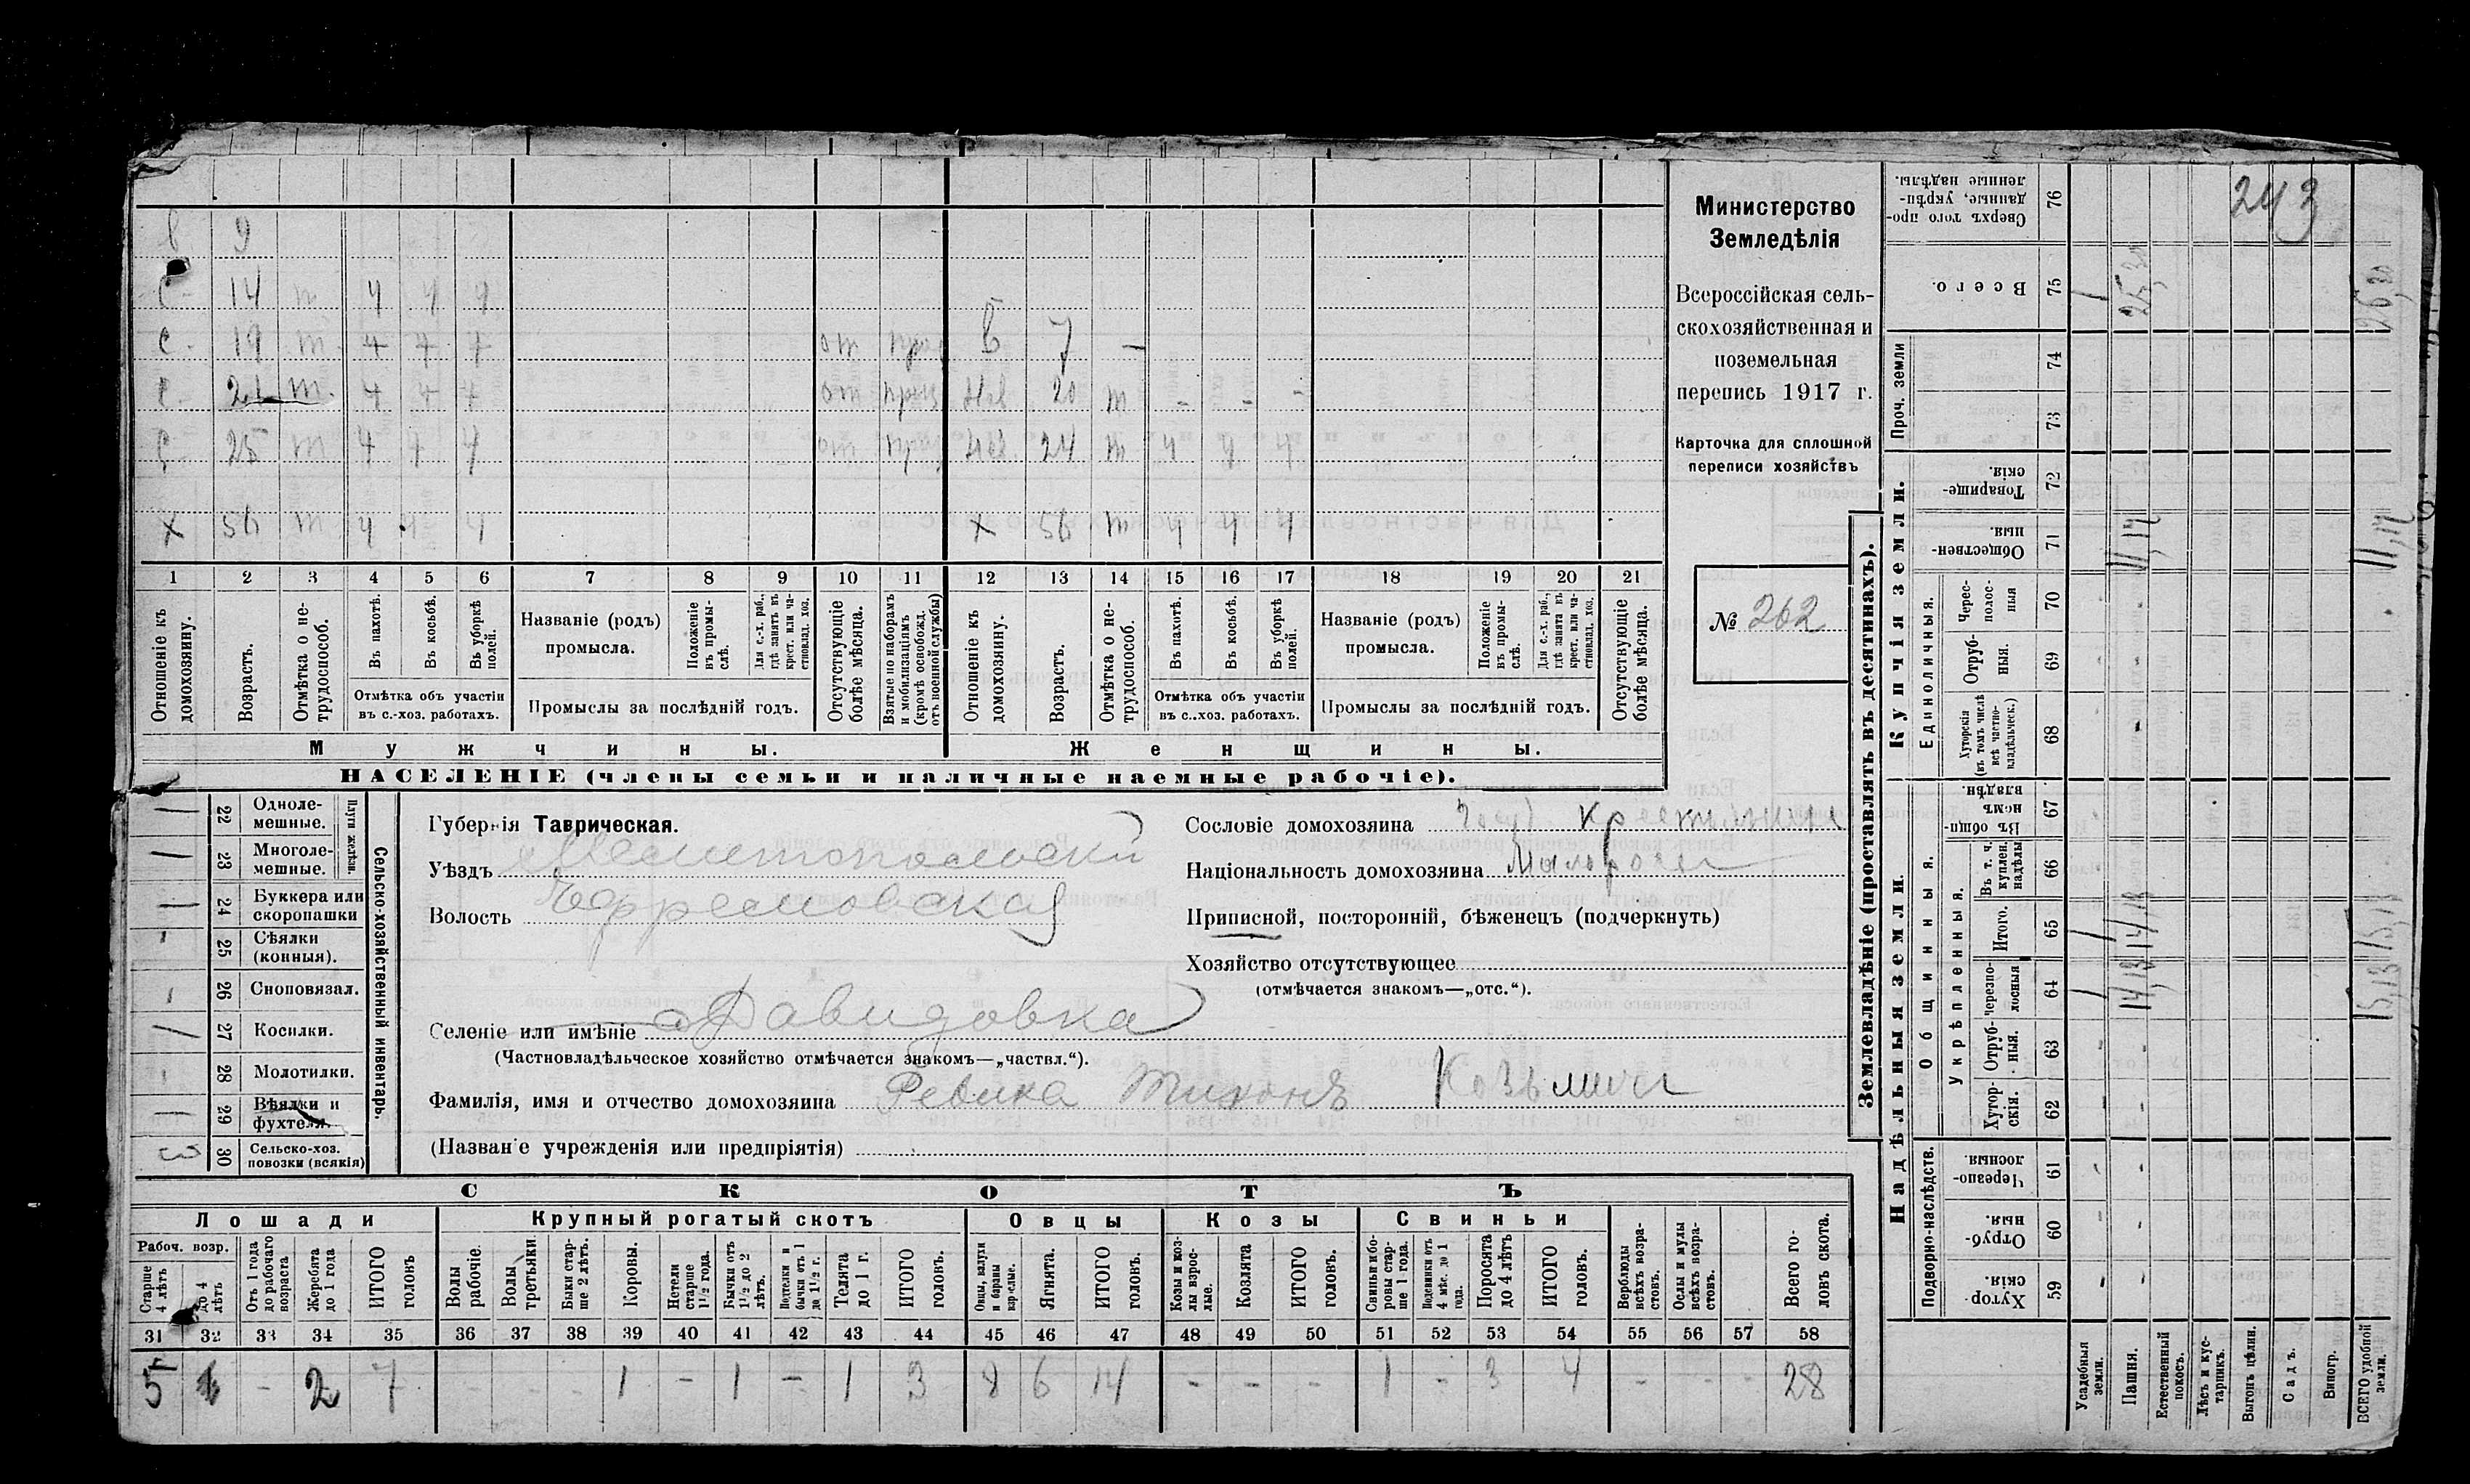 243
В 9
С 14 т 4 4 4
С 19 т 4 4 4 от приз В 7 —
С 21 т. 4 4 4 от приз Нев 20 т - - -
С 25 т 4 4 4 от приз Нев 24 т 4 4 4
Х 56 т 4 4 4 Х 56 т 4 4 4
1 2 3 4 5 6 7 8 9 10 11 12 13 14 15 16 17 18 19 20 21
Отношеніе къ домохозяину.
Возрастъ.
Отмѣтка о нетрудоспособ.
Въ пахотѣ.
Въ косьбѣ.
Въ уборкѣ полей.
Отмѣтка объ участіи
въ с.-хоз. работахъ.
Названіе (родъ)
промысла.
Положеніе въ промыслѣ.
Для с.-х. раб., гдѣ занятъ въ крест. или частновлад. хоз.
Промыслы за послѣдній годъ.
Отсутствующіе болѣе мѣсяца.
Взятые по наборамъ и мобилизаціямъ (кромѣ освобожд. отъ военной службы)
Отношеніе къ домохозяину.
Возрастъ.
Отмѣтка о нетрудоспособ.
Въ пахотѣ.
Въ косьбѣ.
Въ уборкѣ полей.
Отмѣтка объ участіи
въ с.-хоз. работахъ.
Названіе (родъ)
промысла.
Положеніе въ промыслѣ.
Для с.-х. раб., гдѣ занята въ крест. или частновлад. хоз.
Промыслы за послѣдній годъ.
Отсутствующіе болѣе мѣсяца.
Мужчины.
Женщины.
НАСЕЛЕНІЕ (члены семьи и наличные наемные рабочіе).
Министерство
Земледѣлія
Всероссійская сель-
скохозяйственная и
поземельная
перепись 1917 г.
Карточка для сплошной
переписи хозяйствъ
№ 262
Сельско-хозяйственный инвентарь.
Плуги желѣзн.
22 Однолемешные. /
23 Многолемешные. /
24 Буккера или скоропашки /
25 Сѣялки (конныя). -
26 Сноповязал. -
27 Косилки. /
28 Молотилки. -
29 Вѣялки и фухтеля. /
30 Сельско-хоз. повозки (всякія) 3
Губернія Таврическая.
Уѣздъ Мелитопольскій
Волость Ефремовская
Селеніе или имѣніе Давидовка
(Частновладѣльческое хозяйство отмѣчается знакомъ—„частвл.“).
Фамилія, имя и отчество домохозяина Ревика Тихонъ Козьмичъ
(Названіе учрежденія или предпріятія)
Сословіе домохозяина Госуд крестьянинъ
Національность домохозяина Малоросъ
Приписной, посторонній, бѣженецъ (подчеркнуть)
Хозяйство отсутствующее
(отмѣчается знакомъ—„отс.“).
СКОТЪ
Лошади
Крупный рогатый скотъ
Овцы
Козы
Свиньи
Рабоч. возр.
Старше 4 лѣтъ
до 4 лѣтъ
Отъ 1 года до рабочаго возраста
Жеребята до 1 года
ИТОГО головъ
Волы рабочіе.
Волы третьяки
Быки старше 2 лѣтъ.
Коровы.
Нетели старше 1½ года.
Бычки отъ 1½ до 2 лѣтъ.
Подтелки и бычки отъ 1 до 1½ г.
Телята до 1 г.
ИТОГО головъ.
Овцы, валухи и бараны взрослые.
Ягнята.
ИТОГО головъ.
Козы и козлы взрослые.
Козлята
ИТОГО головъ.
Свиньи и боровы старше 1 года.
Подсвинки отъ 4 мѣс. до 1 года.
Поросята до 4 лѣтъ
ИТОГО головъ.
Верблюды всѣхъ возрастовъ.
Ослы и мулы всѣхъ возрастовъ.
Всего головъ скота.
31 32 33 34 35 36 37 38 39 40 41 42 43 44 45 46 47 48 49 50 51 52 53 54 55 56 57 58
5 1 - 2 7 - - - 1 - 1 - 1 3 8 6 14 - - - 1 - 3 4 - - - 28
Землевладѣніе (проставлять въ десятинахъ).
Надѣльныя земли.
Купчія земли.
Проч. земли
Подворно-наслѣдств.
Общинныя.
Укрѣпленныя.
Единоличныя.
Хуторскія. 59
Отрубныя. 60
Черезполосныя. 61
Хуторскія. 62
Отрубныя. 63
черезполосныя 64
Итого. 65
Въ т. ч. куплен. надѣлы 66
Въ общинномъ владѣн. 67
Хуторскія (въ томъ числѣ всѣ частновладѣльческ.) 68
Отрубныя. 69
Чересполосныя 70
Общественныя 71
Товарищескія. 72
73
74
Всего. 75
Сверхъ того проданные, укрѣпленные надѣлы. 76
Усадебныя земли. 1 1 1
Пашня. 14,13 14,13 11,17 25,30
Естественный покосъ.
Лѣсъ и кустарникъ.
Выгонъ цѣлин.
Садъ.
Виногр.
ВСЕГО удобной земли. 15,13 15,13 11,17 26,30